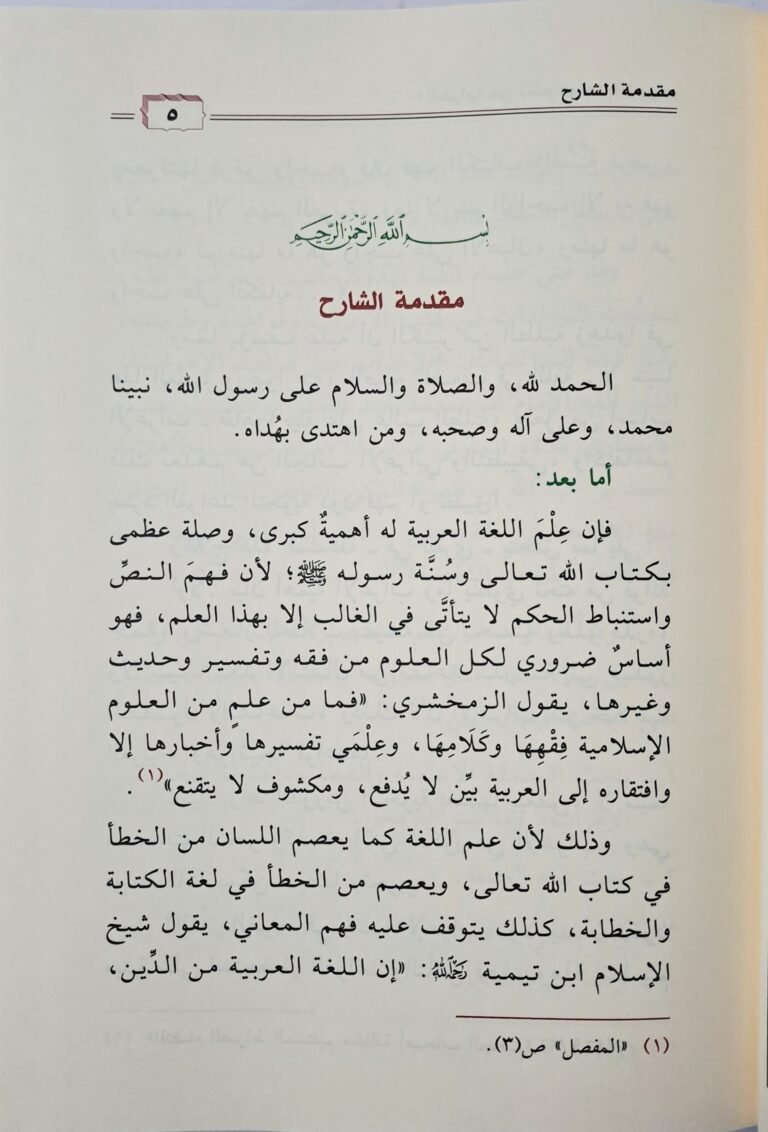 مقدمة الشارح
٥
بسم الله الرحمن الرحيم
مقدمة الشارح
الحمد لله، والصلاة والسلام على رسول الله، نبينا
محمد، وعلى آله وصحبه، ومن اهتدى بهُداه.
أما بعد:
فإن عِلْمَ اللغة العربية له أهميةٌ كبرى، وصلة عظمى
بكتاب الله تعالى وسُنَّة رسوله ﷺ؛ لأن فهمَ النصِّ
واستنباط الحكم لا يتأتَّى في الغالب إلا بهذا العلم، فهو
أساسٌ ضروري لكل العلوم من فقه وتفسير وحديث
وغيرها، يقول الزمخشري: «فما من علمٍ من العلوم
الإسلامية فِقْهِهَا وكَلَامِهَا، وعِلْمَي تفسيرها وأخبارها إلا
وافتقاره إلى العربية بيِّن لا يُدفع، ومكشوف لا يتقنع»(١).
وذلك لأن علم اللغة كما يعصم اللسان من الخطأ
في كتاب الله تعالى، ويعصم من الخطأ في لغة الكتابة
والخطابة، كذلك يتوقف عليه فهم المعاني، يقول شيخ
الإسلام ابن تيمية رحمه الله: «إن اللغة العربية من الدِّين،
(١) «المفصل» ص(٣).